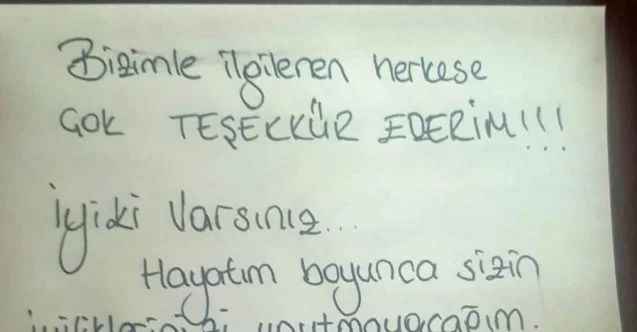 Bizimle ilgilenen herkese
ÇOK TEŞEKKÜR EDERİM!!!
İyiki Varsınız...
Hayatım boyunca sizin
iyiliklerinizi unutmayacağım.